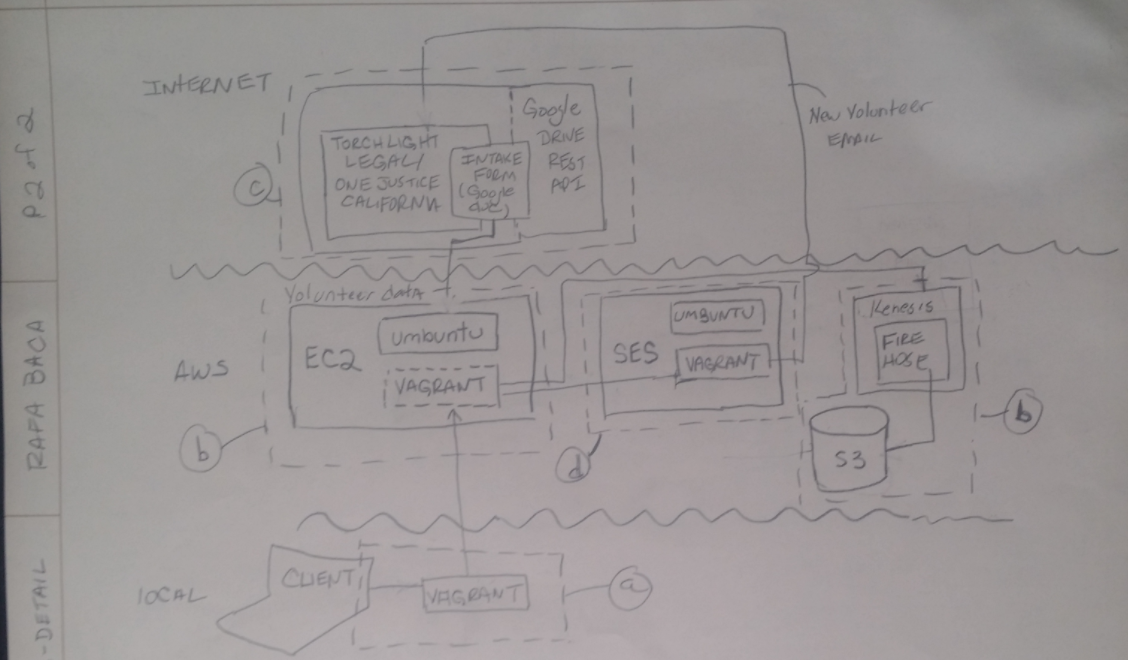 P 2 of 2
RAPA BACA
-DETAIL
INTERNET
New Volunteer
EMAIL
TORCHLIGHT
LEGAL/
ONE JUSTICE
CALIFORNIA
INTAKE
FORM
(Google
doc)
Google
DRIVE
REST
API
c
Volunteer data
AWS
EC2
umbuntu
VAGRANT
b
SES
UMBUNTU
VAGRANT
d
Kenesis
FIRE
HOSE
S3
b
LOCAL
CLIENT
VAGRANT
a